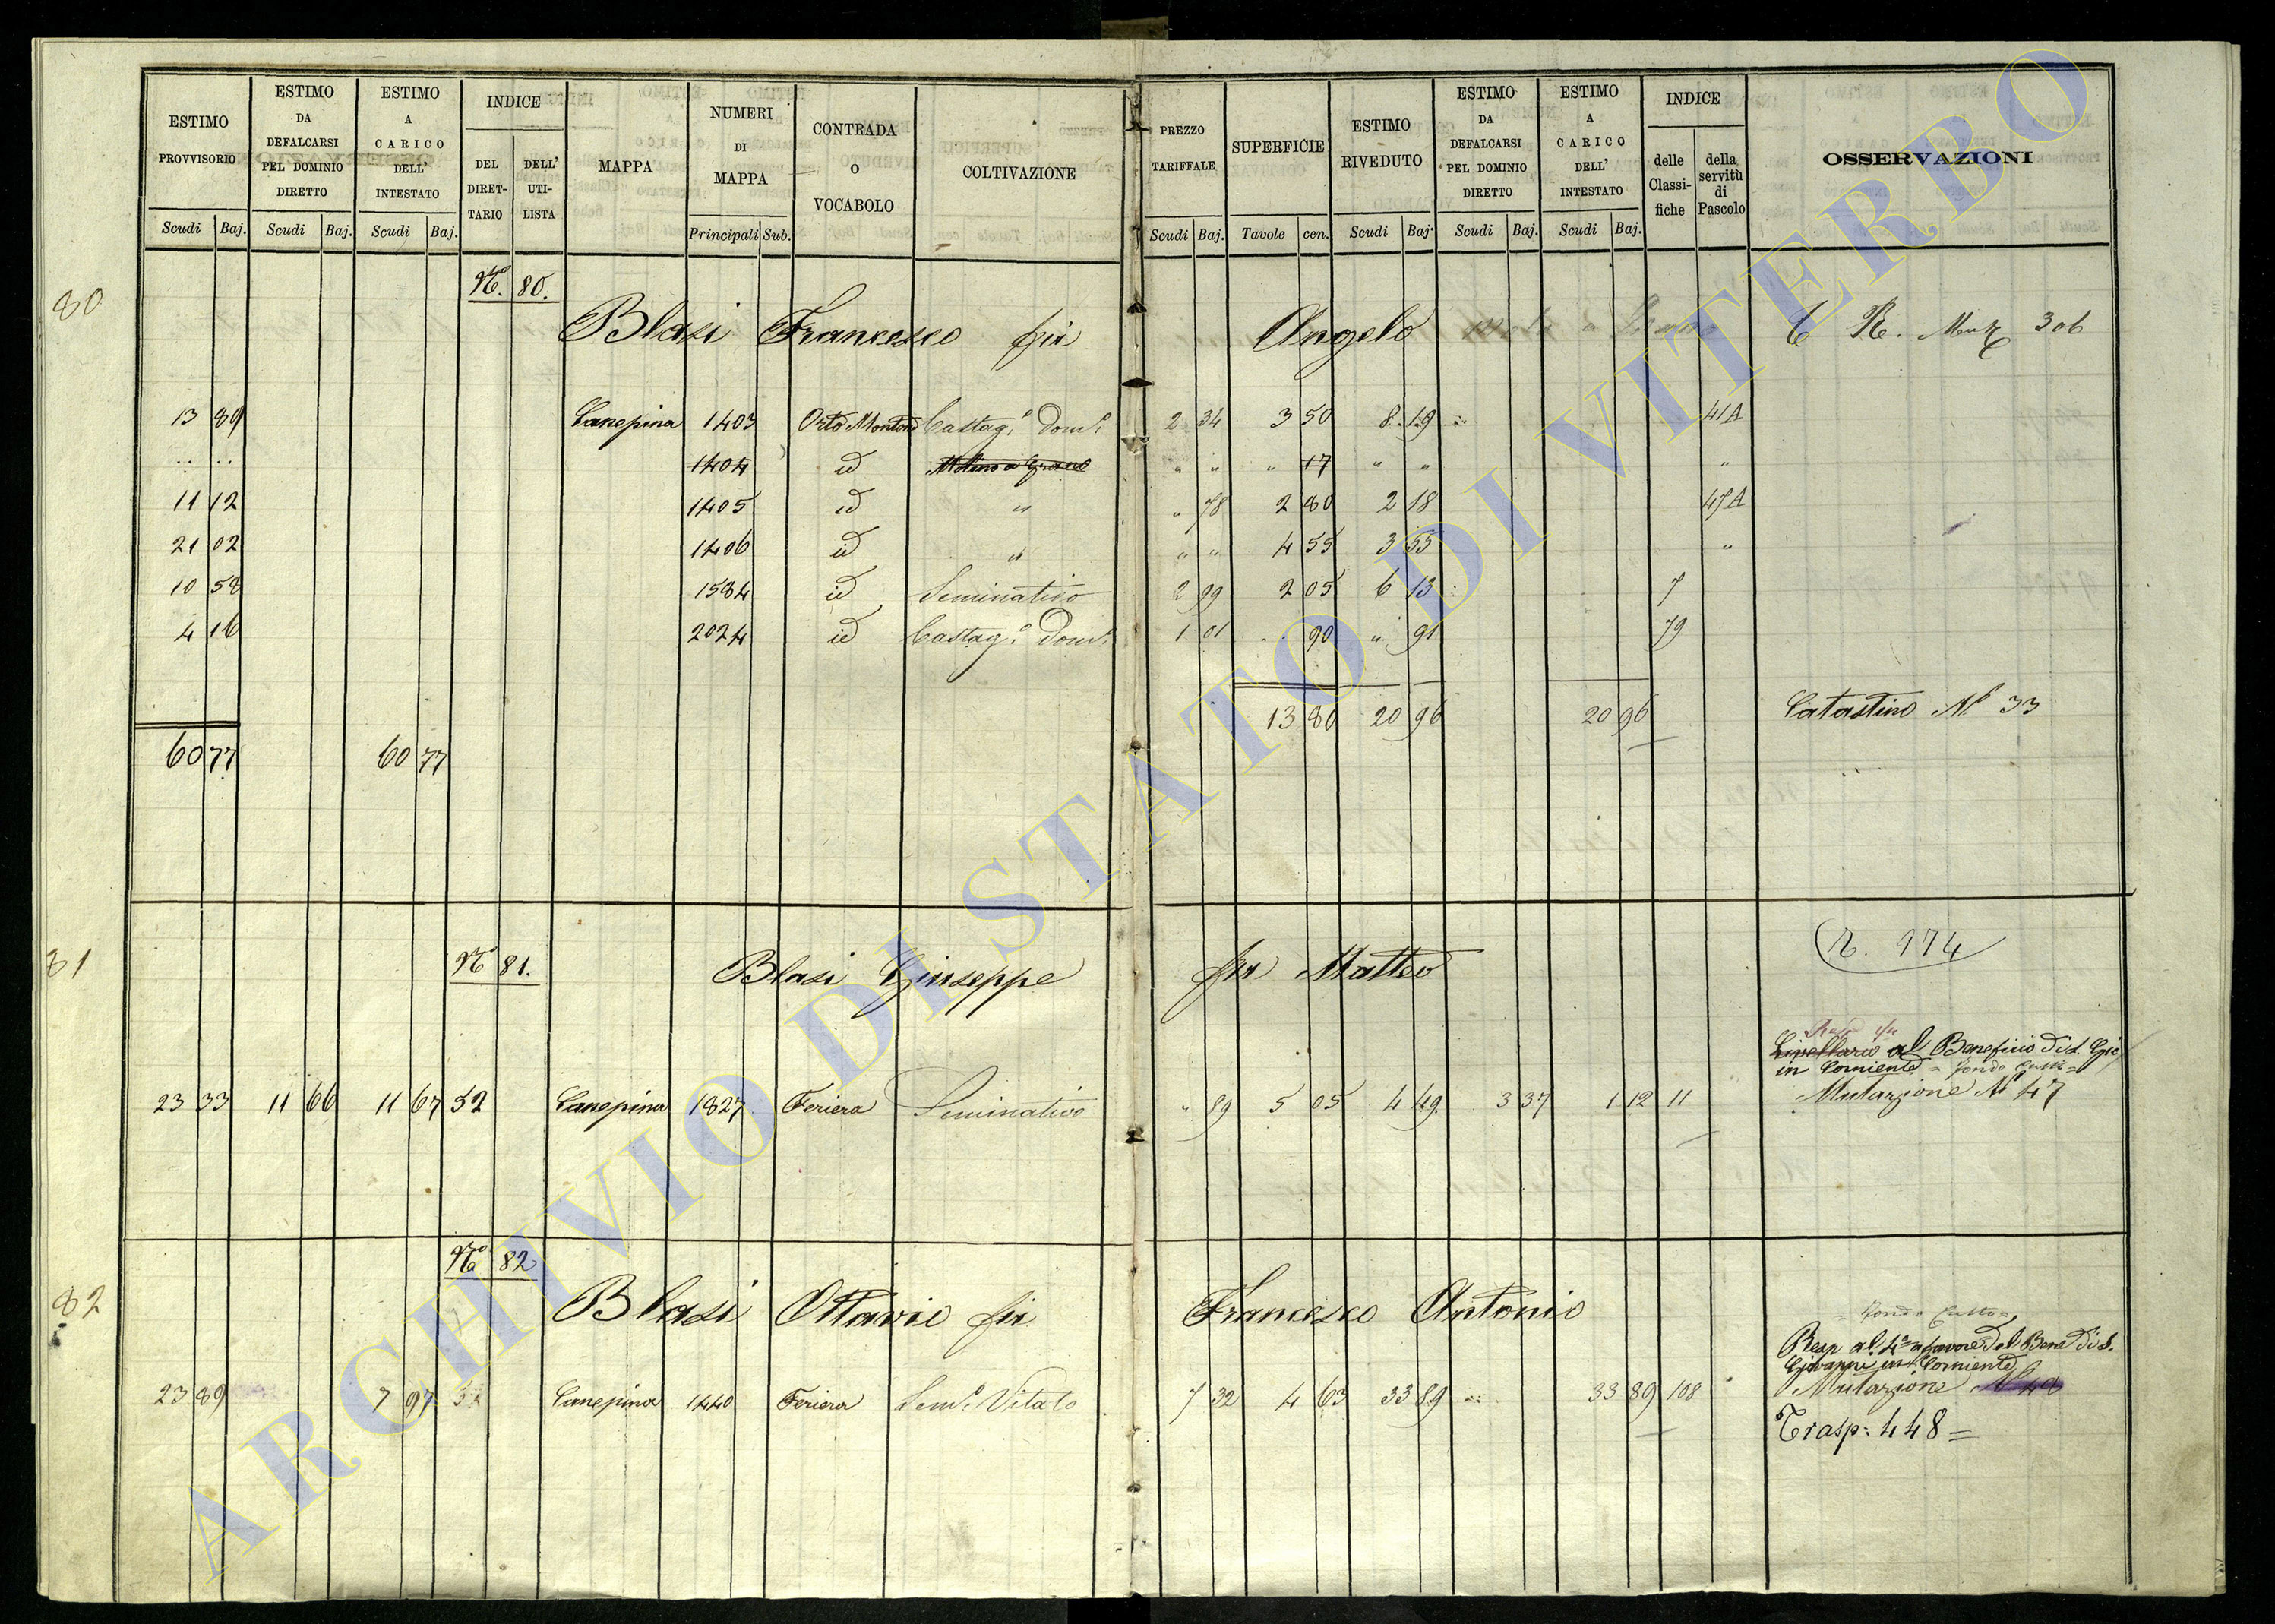 ESTIMO PROVVISORIO
Scudi Baj.
ESTIMO DA DEFALCARSI PEL DOMINIO DIRETTO
Scudi Baj.
ESTIMO A CARICO DELL' INTESTATO
Scudi Baj.
INDICE
DEL DIRET-TARIO
DELL' UTI-LISTA
MAPPA
NUMERI DI MAPPA
Principali Sub.
CONTRADA O VOCABOLO
COLTIVAZIONE
PREZZO TARIFFALE
Scudi Baj.
SUPERFICIE
Tavole cen.
ESTIMO RIVEDUTO
Scudi Baj.
ESTIMO DA DEFALCARSI PEL DOMINIO DIRETTO
Scudi Baj.
ESTIMO A CARICO DELL' INTESTATO
Scudi Baj.
INDICE
delle Classi-fiche
della servitù di Pascolo
OSSERVAZIONI
80
N.° 80.
Blasi Francesco fu Angelo R. 306
13 89 Canepina 1403 Orto Montone Castag.° Dom.° 2 34 3 50 8 19 41A
.. .. 1404 id Molino a Grano " " " 17 " " "
11 12 1405 id " " 78 2 80 2 18 47A
21 02 1406 id " " " 4 55 3 55 "
10 58 1584 id Seminativo 2 99 2 05 6 13 7
4 16 2024 id Castag.° Dom.° 1 01 . 90 " 91 79
13 80 20 96 20 96 Catastino N.° 33
60 77 60 77
81
N.° 81.
Blasi Giuseppe fu Matteo
R. 974
Livellario al Beneficio di S. Gio
in Corniente
23 33 11 66 11 67 52 Canepina 1827 Feriera Seminativo " 89 5 05 4 49 3 37 1 12 11 Mutazione N.° 47
82
N.° 82
Blasi Ottavio fu Francesco Antonio
= Fondo Culto =
Resp al 4.° a favore del Bene di S.
Giovanni in Corniente
23 89 7 97 52 Canepina 1440 Feriera Sem.° Vitato 7 32 4 63 33 89 33 89 108 Mutazione
Trasp: 448 =
ARCHIVIO DI STATO DI VITERBO